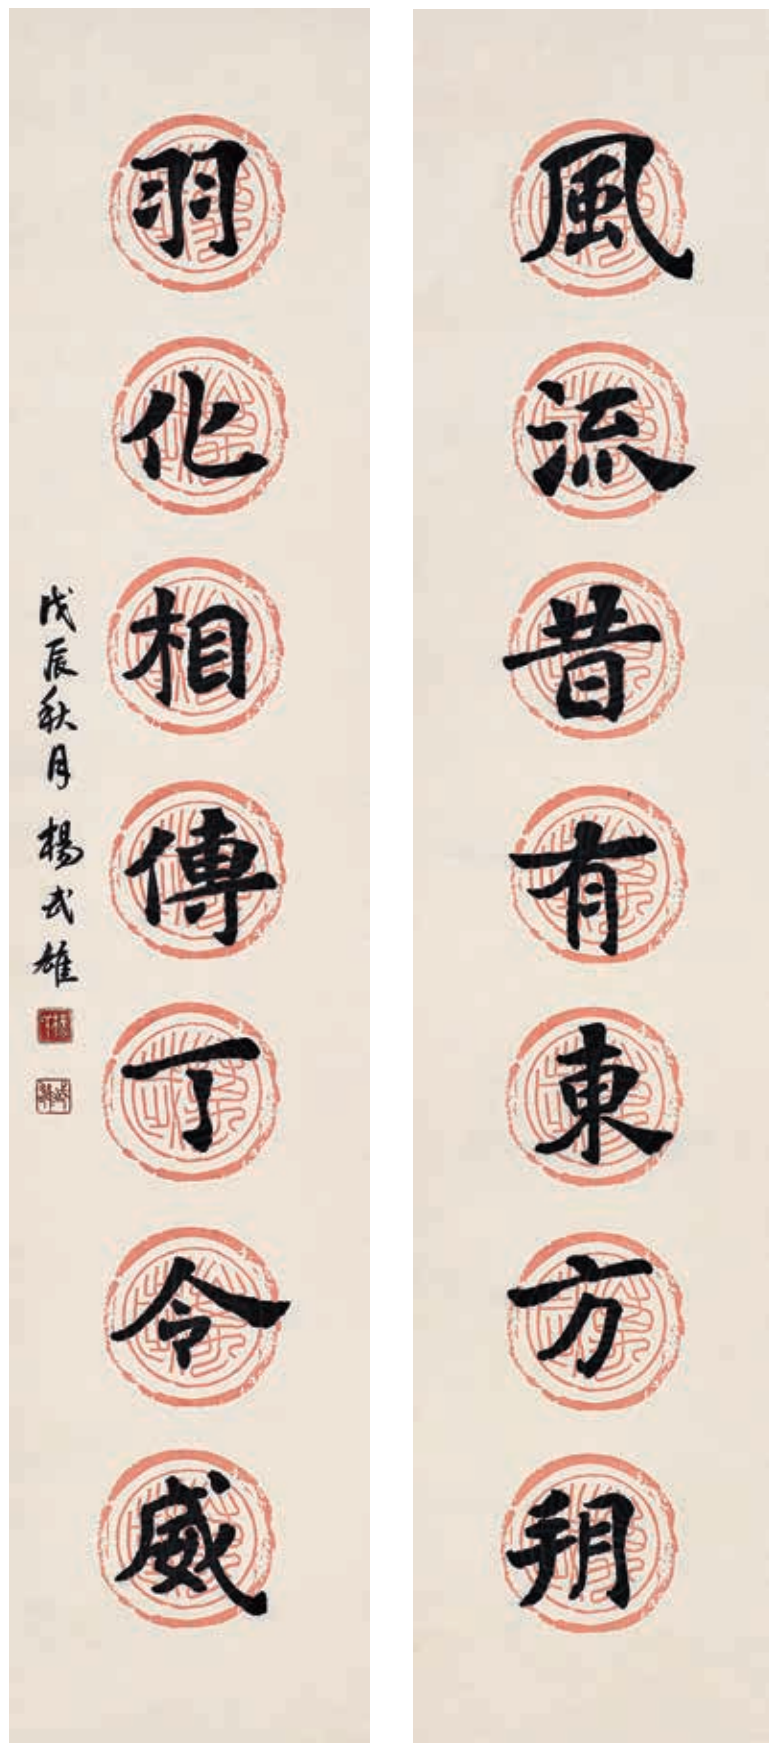 風流昔有東方朔
羽化相傳丁令威
戊辰秋月 楊武雄